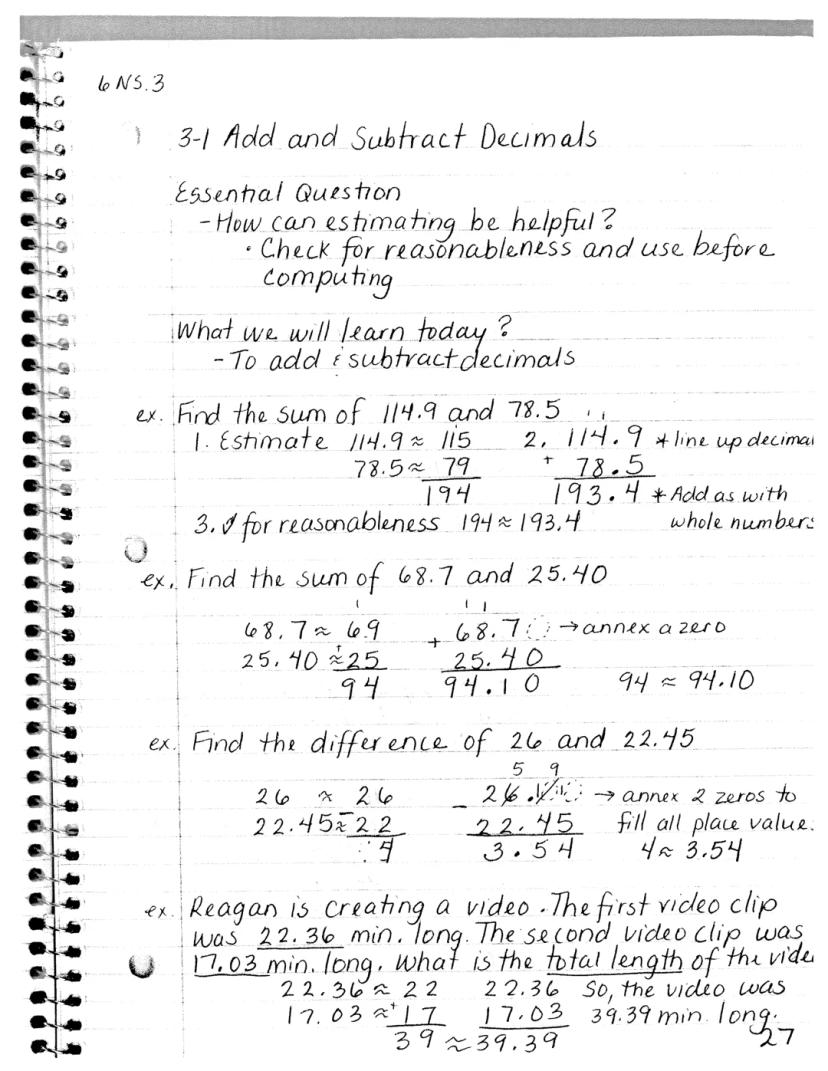 6 NS.3
3-1 Add and Subtract Decimals
Essential Question
- How can estimating be helpful?
• Check for reasonableness and use before
computing
What we will learn today?
- To add & subtract decimals
ex. Find the sum of 114.9 and 78.5
1. Estimate 114.9 ≈ 115 2. 114.9 * line up decimal
78.5 ≈ 79 + 78.5
194 193.4 * Add as with
3. ✓ for reasonableness 194 ≈ 193.4 whole numbers
ex. Find the sum of 68.7 and 25.40
1 1 1
68.7 ≈ 69 + 68.70 → annex a zero
25.40 ≈ +25 25.40
94 94.10 94 ≈ 94.10
ex. Find the difference of 26 and 22.45
5 9
26 ≈ 26 - 26.100 → annex 2 zeros to
22.45 ≈ -22 22.45 fill all place value.
4 3.54 4 ≈ 3.54
ex. Reagan is creating a video. The first video clip
was 22.36 min. long. The second video clip was
17.03 min. long. What is the total length of the vide
22.36 ≈ 22 22.36 So, the video was
17.03 ≈ +17 17.03 39.39 min. long.
39 ≈ 39.39
27